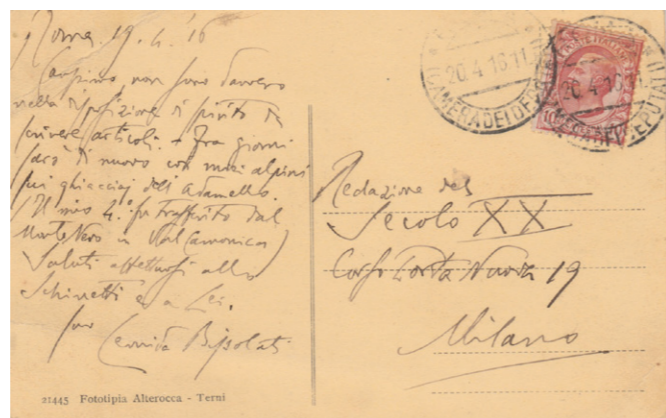 Roma 19.4.16
Carissimo non sono davvero
nella disposizione di spirito di
scrivere articoli. - Fra giorni
sarò di nuovo coi miei alpini
sui ghiacciaj dell'Adamello.
(Il mio 4.º fu trasferito dal
Monte Nero in Val Camonica)
Saluti affettuosi allo
Schinetti e a Lei.
suo
Leonida Bissolati
21445 Fototipia Alterocca - Terni
20.4.16.11
CAMERA DEI DEPUTATI
POSTE ITALIANE
10
Redazione del
Secolo XX
Corso Porta Nuova 19
Milano